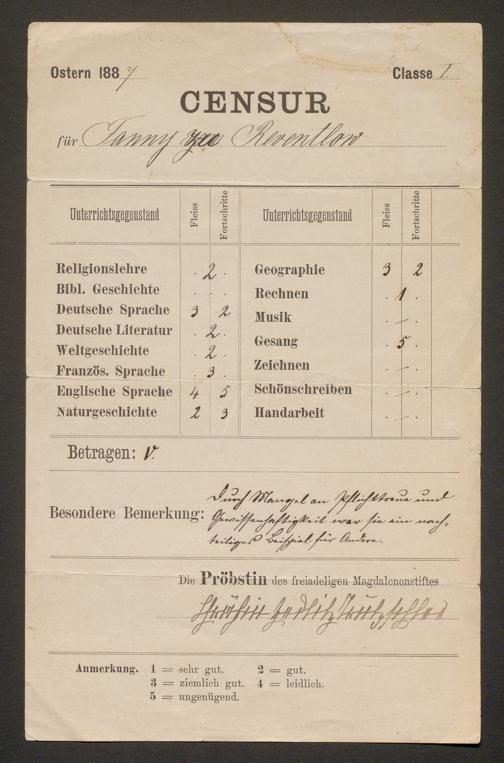 Ostern 1887 Classe I
CENSUR
für Fanny Reventlow
Unterrichtsgegenstand Fleiss Fortschritte Unterrichtsgegenstand Fleiss Fortschritte
Religionslehre . 2 . Geographie 3 2
Bibl. Geschichte . - . Rechnen . 1 .
Deutsche Sprache 3 2 Musik . - .
Deutsche Literatur . 2 . Gesang . 5 .
Weltgeschichte . 2 . Zeichnen . - .
Französ. Sprache . 3 . Schönschreiben . - .
Englische Sprache 4 5 Handarbeit . - .
Naturgeschichte 2 3
Betragen: V.
Besondere Bemerkung: Durch Mangel an Pflichttreue und
Gewissenhaftigkeit war sie ein nach-
teiliges Beispiel für Andere.
Die Pröbstin des freiadeligen Magdalenenstiftes
Anmerkung. 1 = sehr gut. 2 = gut.
3 = ziemlich gut. 4 = leidlich.
5 = ungenügend.